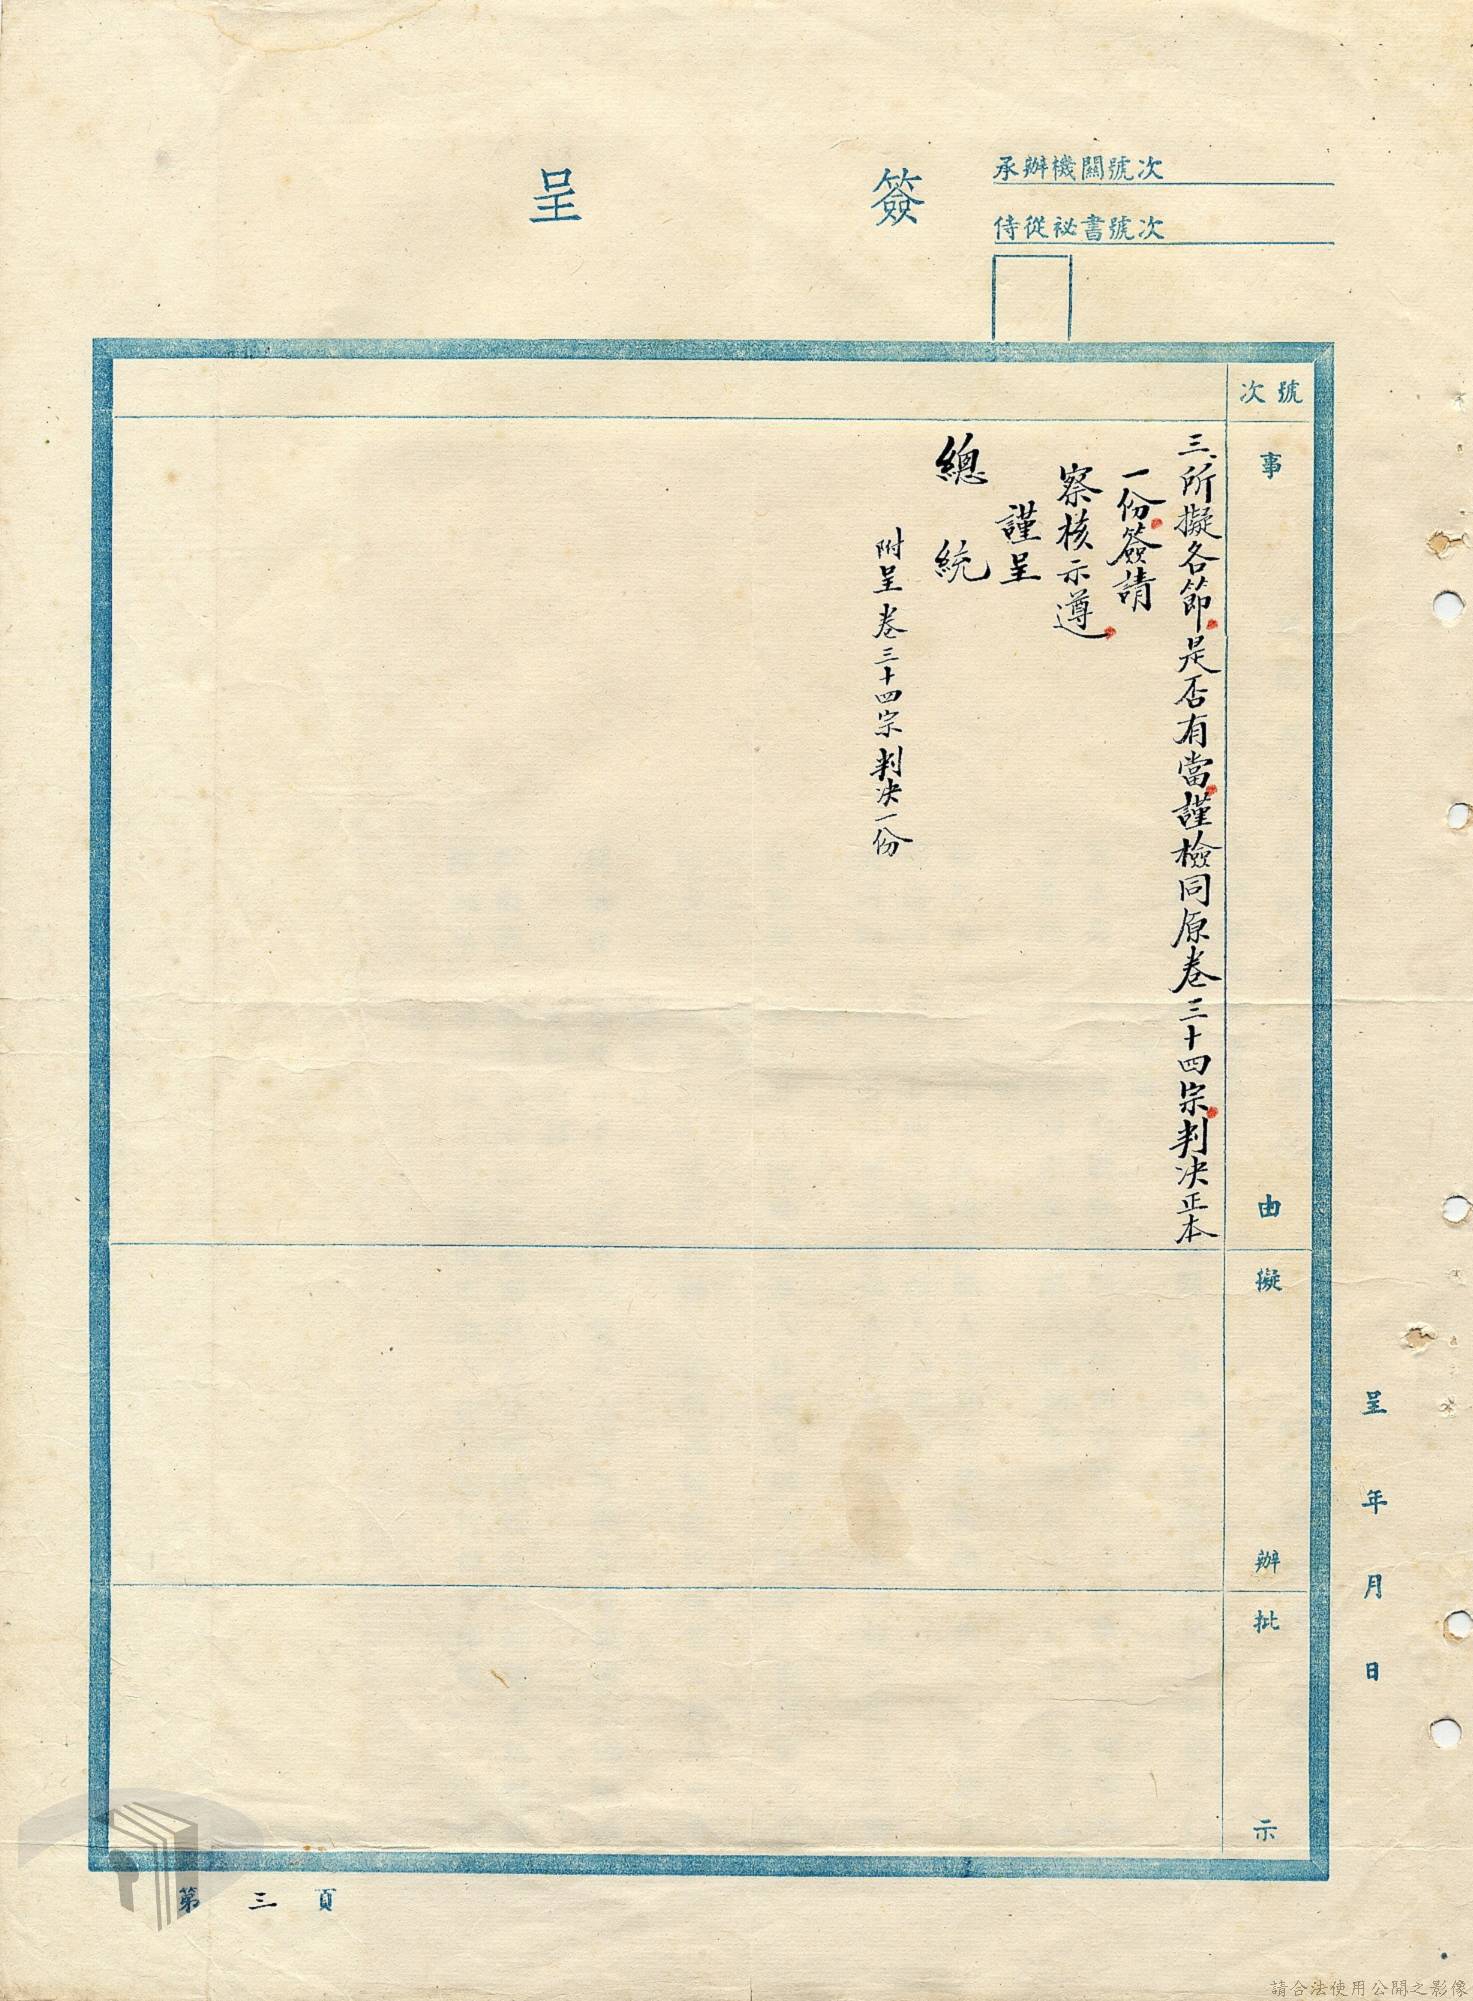 簽呈
承辦機關號次
侍從祕書號次
號次
事由
三、所擬各節是否有當謹檢同原卷三十四宗判决正本
一份簽請
察核示遵
謹呈
總統
附呈卷三十四宗判决一份
擬辦
批示
呈 年 月 日
第三頁
請合法使用公開之影像